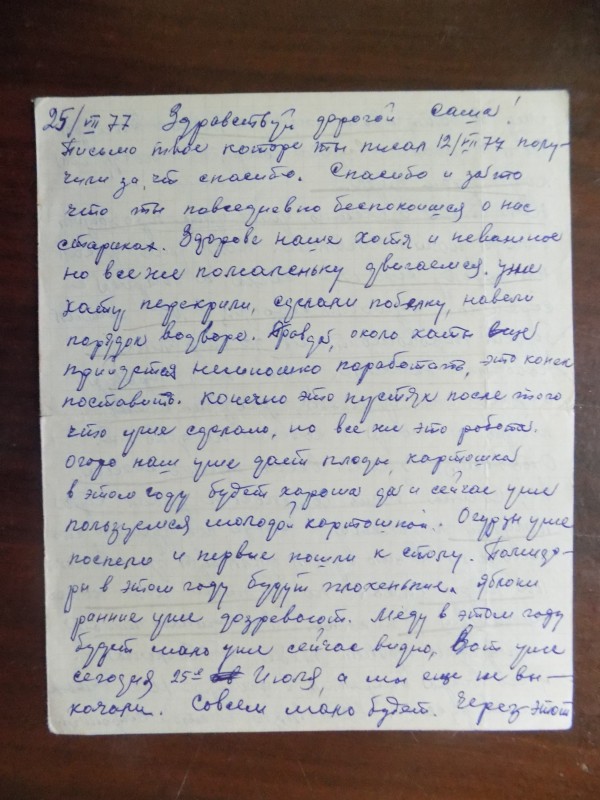 25/VII 77 Здравствуй дорогой Саша!
Письмо твое которе ты писал 12/VII 77 полу-
чили за, что спасибо. Спасибо и за то
что ты повседневно беспокоишся о нас
стариках. Здорове наше хотя и неважное
но все же помаленьку двигаемся. Уже
хату перекрили, сделали побелку, навели
порядок водворе. Правда, около хаты еще
прийдется немношко поработать, это конек
поставить. Конечно это пустяк после того
что уже сделало, но все же это робота.
Огоро наш уже дает плоды, картошка
в этом году будет хороша да и сейчас уже
пользуемся молодой картошкой. Огурци уже
поспели и первие пошли к столу. Помидо-
ри в этом году будут плохенькие. Яблоки
ранние уже дозревают. Меду в этом году
будет мало уже сейчас видно, Вот уже
сегодня 25е Июля, а мы еще не вы-
качали. Совсем мало будет. Через этот